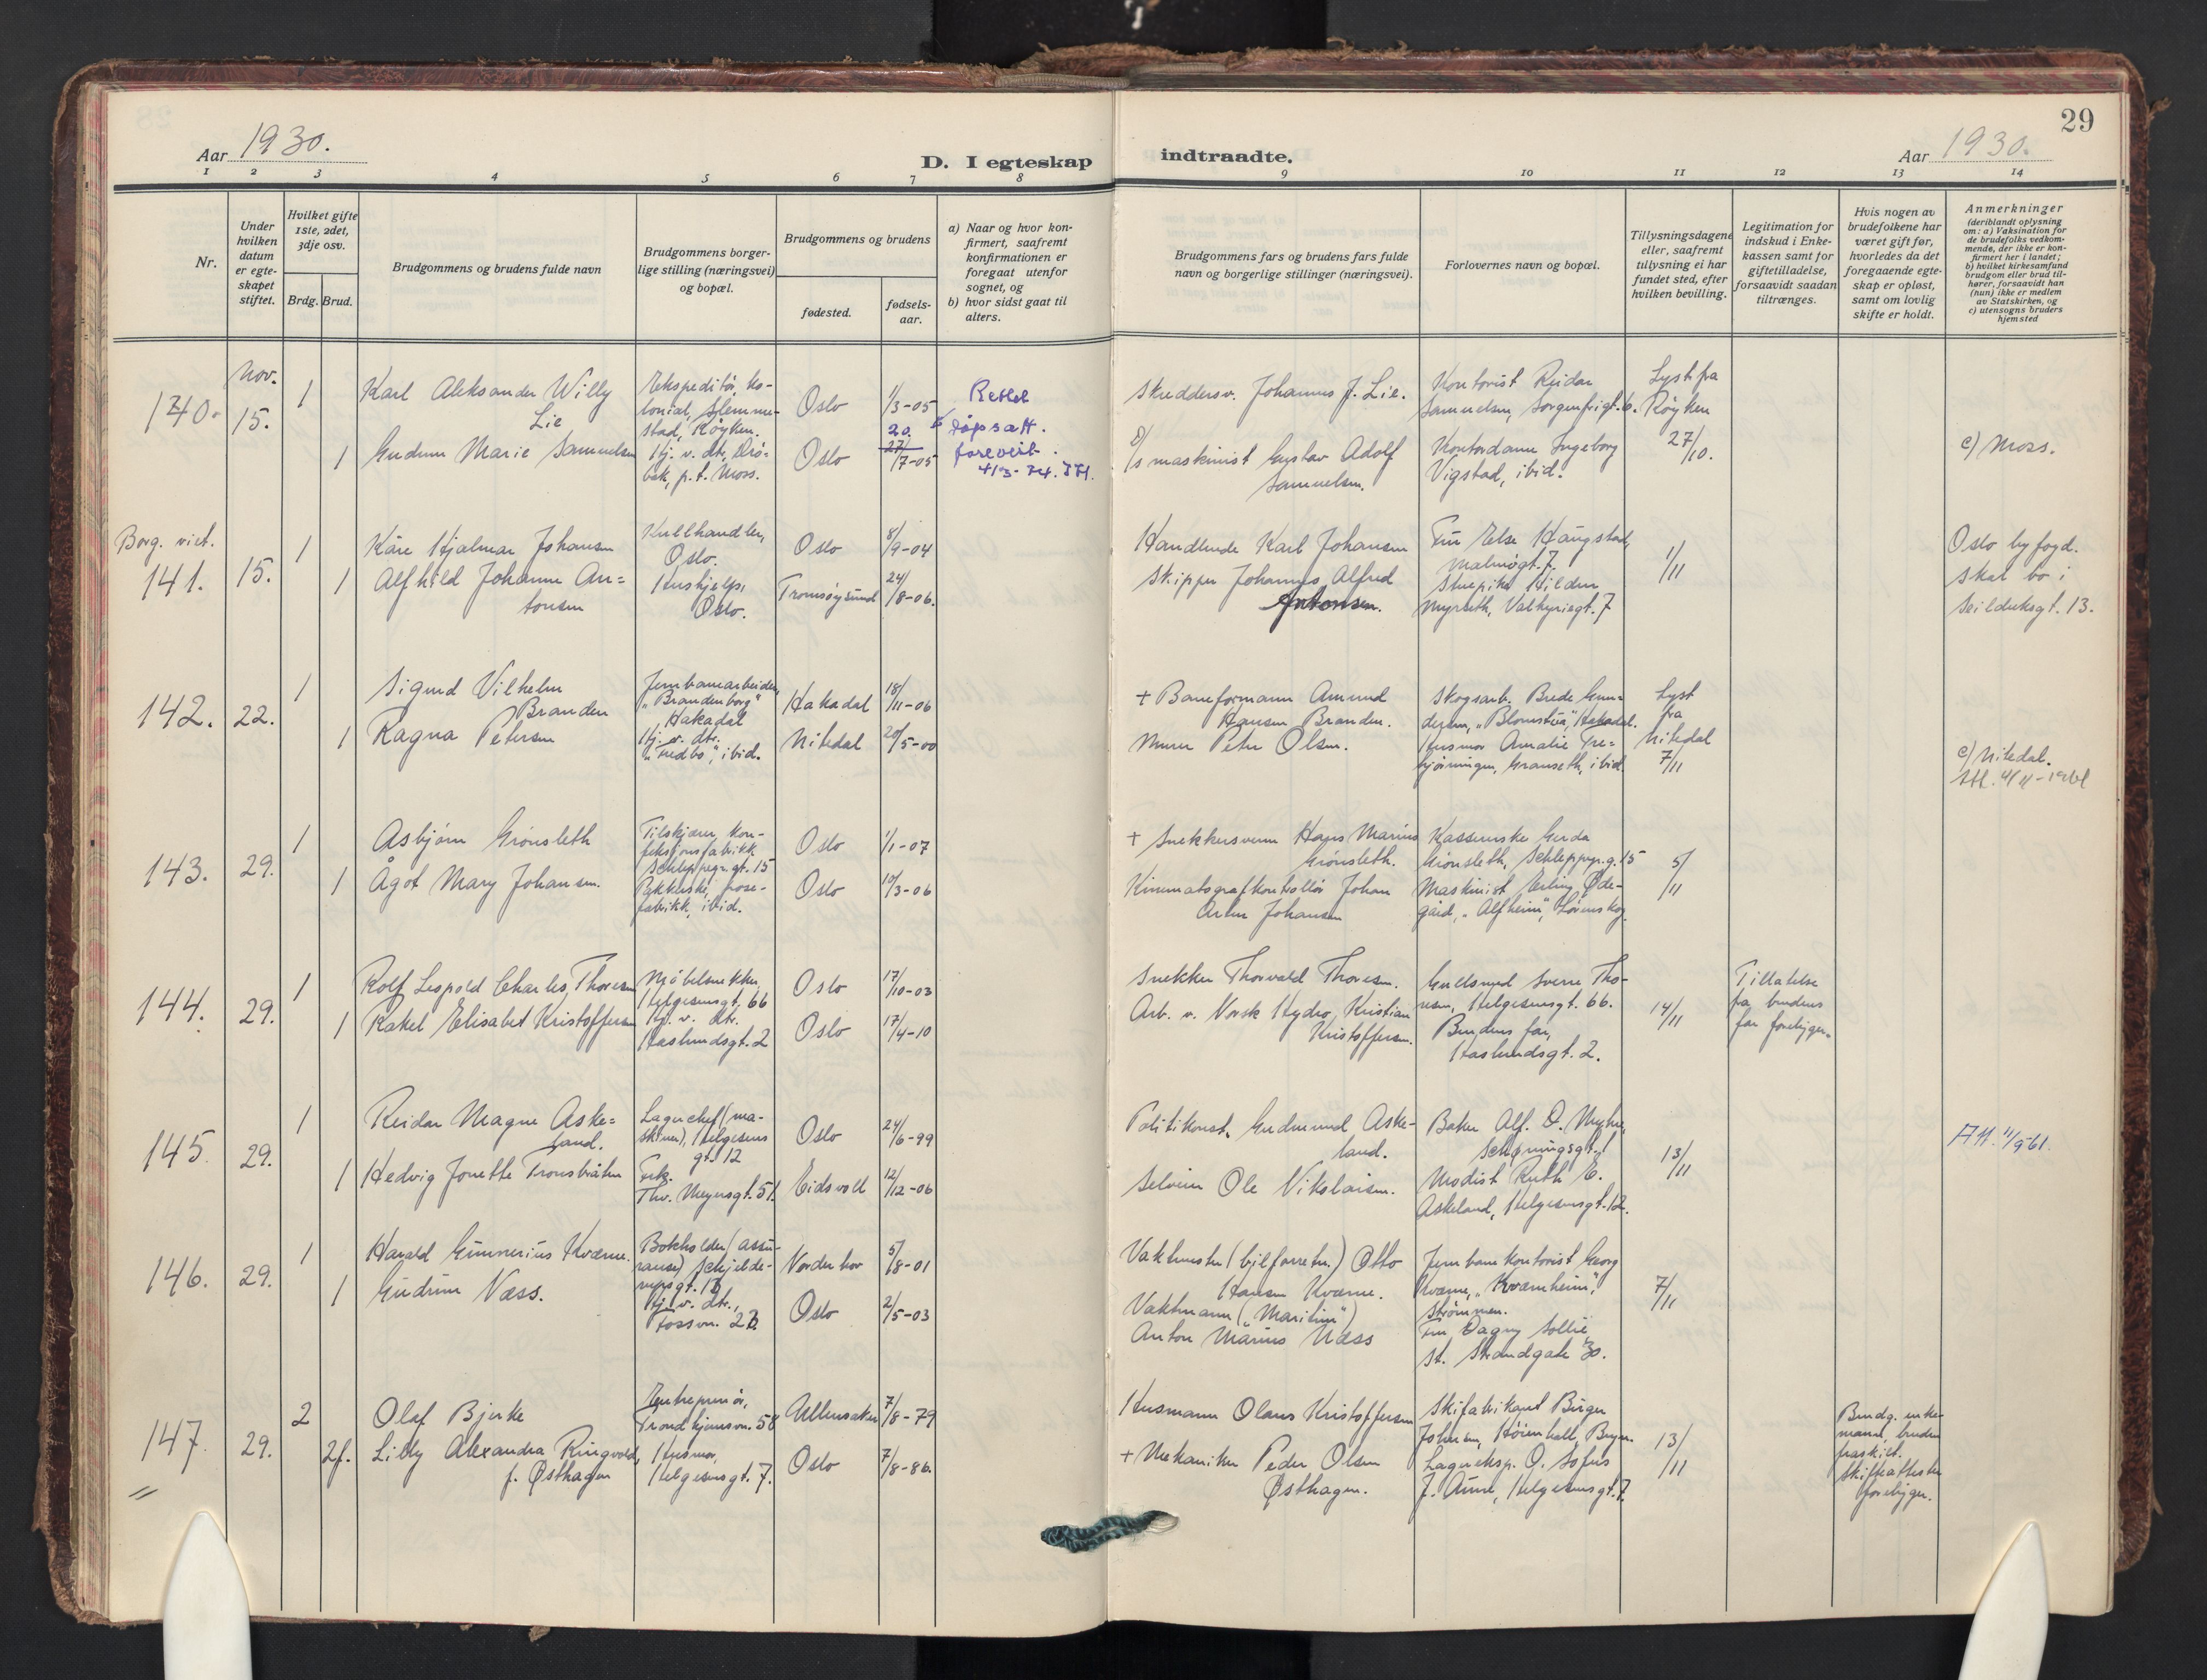 29
Aar 1930.
D. I egteskap indtraadte.
Aar 1930.
1 2 3 4 5 6 7 8 9 10 11 12 13 14
Nr.
Under
hvilken
datum
er egte-
skapet
stiftet.
Hvilket gifte
1ste, 2det,
3dje osv.
Brdg. Brud.
Brudgommens og brudens fulde navn
Brudgommens borger-
lige stilling (næringsvei)
og bopæl.
Brudgommens og brudens
fødested.
fødsels-
aar.
a) Naar og hvor kon-
firmert, saafremt
konfirmationen er
foregaat utenfor
sognet, og
b) hvor sidst gaat til
alters.
Brudgommens fars og brudens fars fulde
navn og borgerlige stillinger (næringsvei).
Forlovernes navn og bopæl.
Tillysningsdagene
eller, saafremt
tillysning ei har
fundet sted, efter
hvilken bevilling.
Legitimation for
indskud i Enke-
kassen samt for
giftetilladelse,
forsaavidt saadan
tiltrænges.
Hvis nogen av
brudefolkene har
været gift før,
hvorledes da det
foregaaende egte-
skap er opløst,
samt om lovlig
skifte er holdt.
Anmerkninger
(deriblandt oplysning
om: a) Vaksination for
de brudefolks vedkom-
mende, der ikke er kon-
firmert her i landet;
b) hvilket kirkesamfund
brudgom eller brud til-
hører, forsaavidt han
(hun) ikke er medlem
av Statskirken, og
c) utensogns bruders
hjemsted
140.
Nov.
15.
1
Karl Aleksander Willy
Lie
Ekspeditør, ko-
lonial, Slemme-
stad, Røyken.
Oslo
1/3-05
Rettet
Skreddersv. Johannes J. Lie.
Kontorist Reidar
Samuelsen, Sorgenfrigt. 6.
Lyst fra
Røyken
27/10.
1
Gudrun Marie Samuelsen
Hj. v. dtr., Drø-
bak, p.t. Moss.
Oslo
20.
27/7-05
dåpsatt.
forevist.
S/s maskinist Gustav Adolf
Samuelsen.
Kontordame Ingeborg
Vigstad, ibid.
c) Moss.
Borg. viet.
141.
15.
1
Kåre Hjalmar Johansen
Kullhandler,
Oslo.
Oslo
8/9-04
Handlende Karl Johansen
Fru Else Haugstad,
Malmøgt. 7.
1/11
Oslo byfogd.
Skal bo i
Seilduksgt. 13.
1
Alfhild Johanne An=
tonsen
Hushjelp,
Oslo.
Tromsøysund
24/8-06.
Skipper Johannes Alfred
Antonsen.
Stuepike Hildur
Myrseth, Valkyriegt. 7
142.
22.
1
Sigurd Vilhelm
Branden
Jernbanearbeider,
"Brandenborg"
Hakadal
Hakadal
18/11-06
+ Baneformann Amund
Hansen Branden.
Skogsarb. Brede Gun=
dersen, "Blomstua", Hakadal.
Lyst
fra
Nitedal
7/11
1
Ragna Petersen
Hj. v. dtr.
"Fredbo", ibid.
Nitedal
20/5-00
Murer Peter Olsen.
Husmor Amalie Tre=
, Granseth, ibid.
c) Nitedal.
143.
29.
1
Asbjørn Grønsleth
Tilskjærer, kon-
feksjonsfabrikk
Schleppegr. gt. 15
Oslo
1/1-07
+ Snekkersvenn Hans Marius
Grønsleth.
Kassererske Gerda
Grønsleth, Schleppegr.g. 15
5/11
1
Ågot Mary Johansen.
Pakkerske, pose-
fabrikk, ibid.
Oslo
10/3-06
Kinematografkontrollør Johan
Artur Johansen
Maskinist Erling Øde-
gård, "Alfheim", Lørenskog.
144.
29.
1
Rolf Leopold Charles Thoresen
Møbelsnekker,
Helgesensgt. 66
Oslo
17/10-03
Snekker Thorvald Thoresen.
Gullsmed Sverre Tho-
resen, Helgesensgt. 66.
14/11
Tillatelse
fra brudens
far foreligger.
1
Rakel Elisabet Kristoffersen
Hj. v. dtr.
Haslundsgt. 2
Oslo
17/4-10
Arb. v. Norsk Hydro, Kristian
Kristoffersen.
Brudens far,
Haslundsgt. 2.
145.
29.
1
Reidar Magne Aske=
land.
Lagerchef (ma-
skiner), Helgesens
gt. 12
Oslo
24/6-99
Politikonst. Gudmund Aske-
land.
Baker Alf. O. Myhre,
Schøningsgt. 1
13/11
1
Hedvig Jonette Tronsbråten
Frk.
Thv. Meyersgt. 51.
Eidsvoll
12/12-06
Selveier Ole Nikolaisen.
Modist Ruth E.
Askeland, Helgesensgt. 12.
146.
29.
1
Harald Gunnerius Kværne.
Bokholder (assu-
ranse) Schjelde-
rupsgt. 1b
Norderhov
5/8-01
Vaktmester (bilforretn.) Otto
Hansen Kværne.
Jernbanekontorist Georg
Kværne, "Kværnheim",
Strømmen.
7/11
1
Gudrun Næss.
Hj. v. dtr.,
Fossvn. 2b.
Oslo
2/5-03
Vaktmann ("Maritim")
Anton Marius Næss
Fru Dagny Sollie
St. Strandgate 30.
147.
29.
2
Olaf Bjerke
Entreprenør,
Trondhjemsvn. 58
Ullensaker
7/8-79
Husmann Olaus Kristoffersen
Skifabrikant Birger
Johnsen, Høienhall, Bryn.
13/11
Brudg. enke-
mann, bruden
fraskilt.
Skifteattester
foreligger.
2f.
Lilly Alexandra Ringvold,
f. Østhagen
Husmor,
Helgesensgt. 7.
Oslo
7/8-86.
+ Mekaniker Peder Olsen
Østhagen.
Lagereksp. O. Sofus
J. Aune, Helgesensgt. 7.